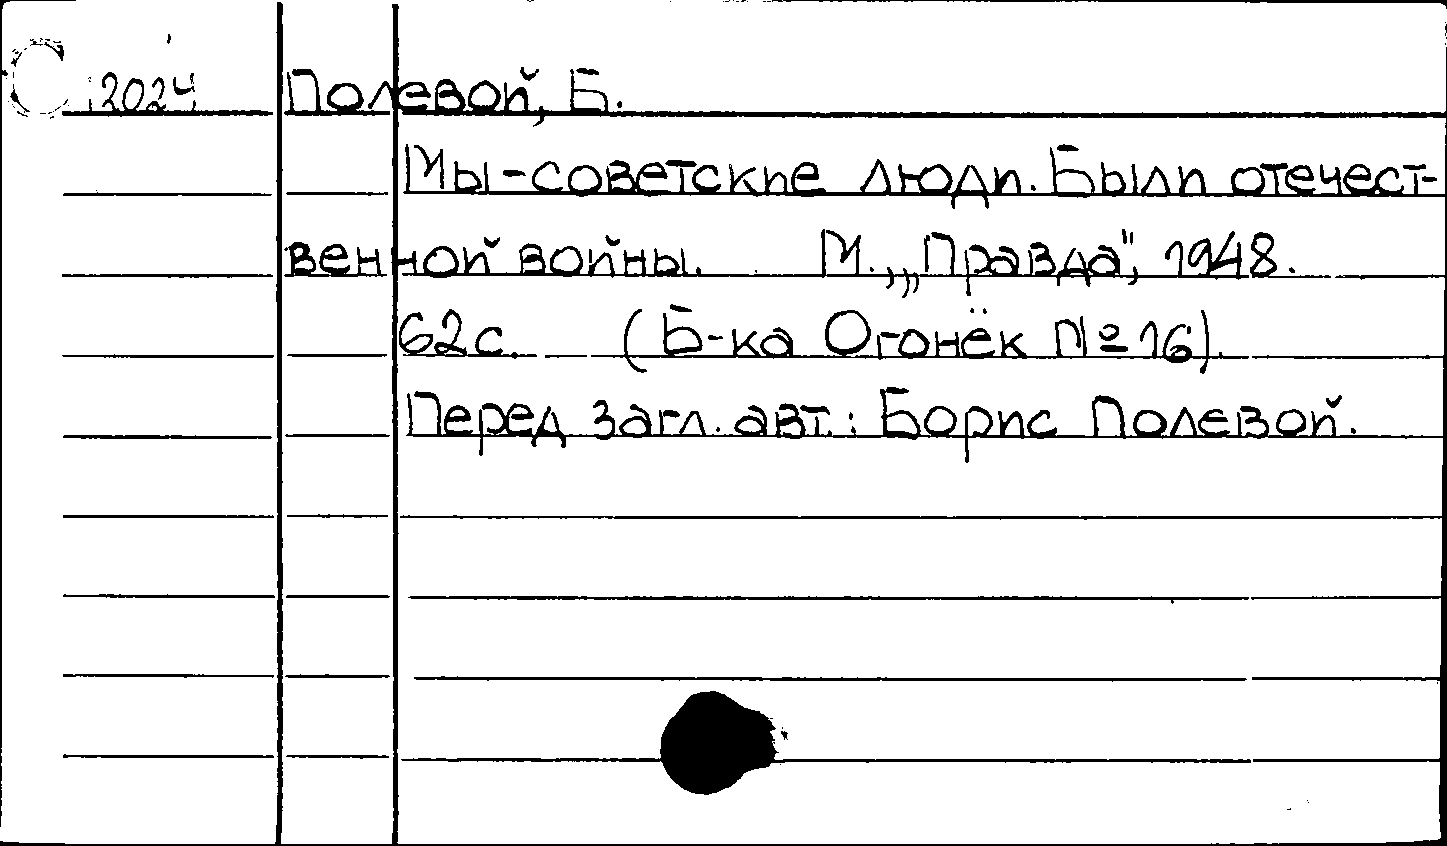 С 2024 Полевой, Б.
Мы-советские люди. Были отечест-
венной войны. М., „Правда", 1948.
62с. (Б-ка Огонёк №16).
Перед загл. авт.: Борис Полевой.